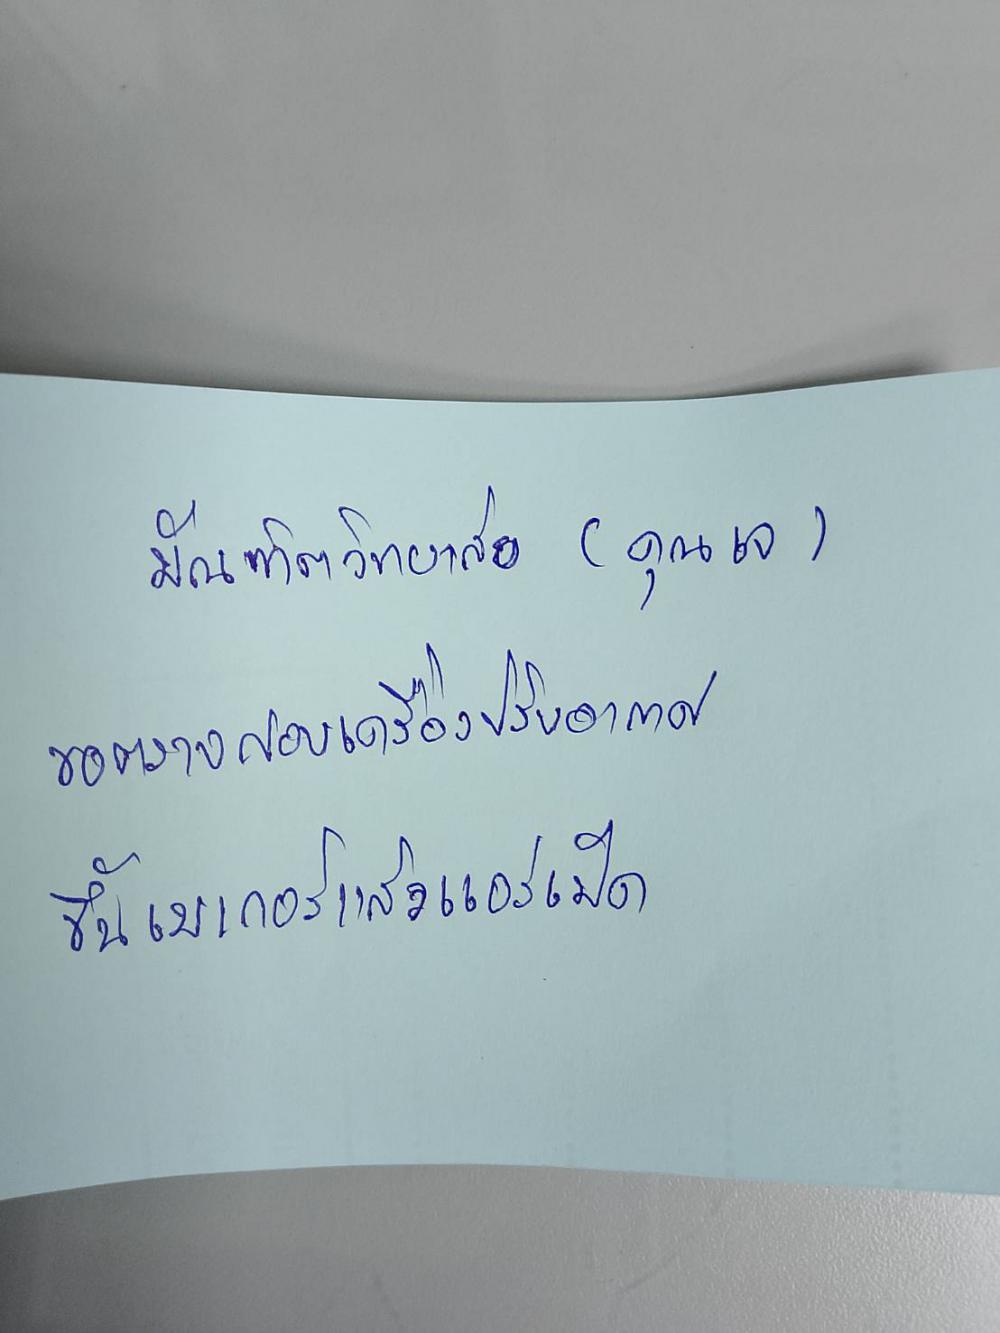 บัณฑิตวิทยาลัย (คุณเจ)
ขอตรวจสอบเครื่องปรับอากาศ
ขึ้นเบเกอร์แล้วแอร์เปิด